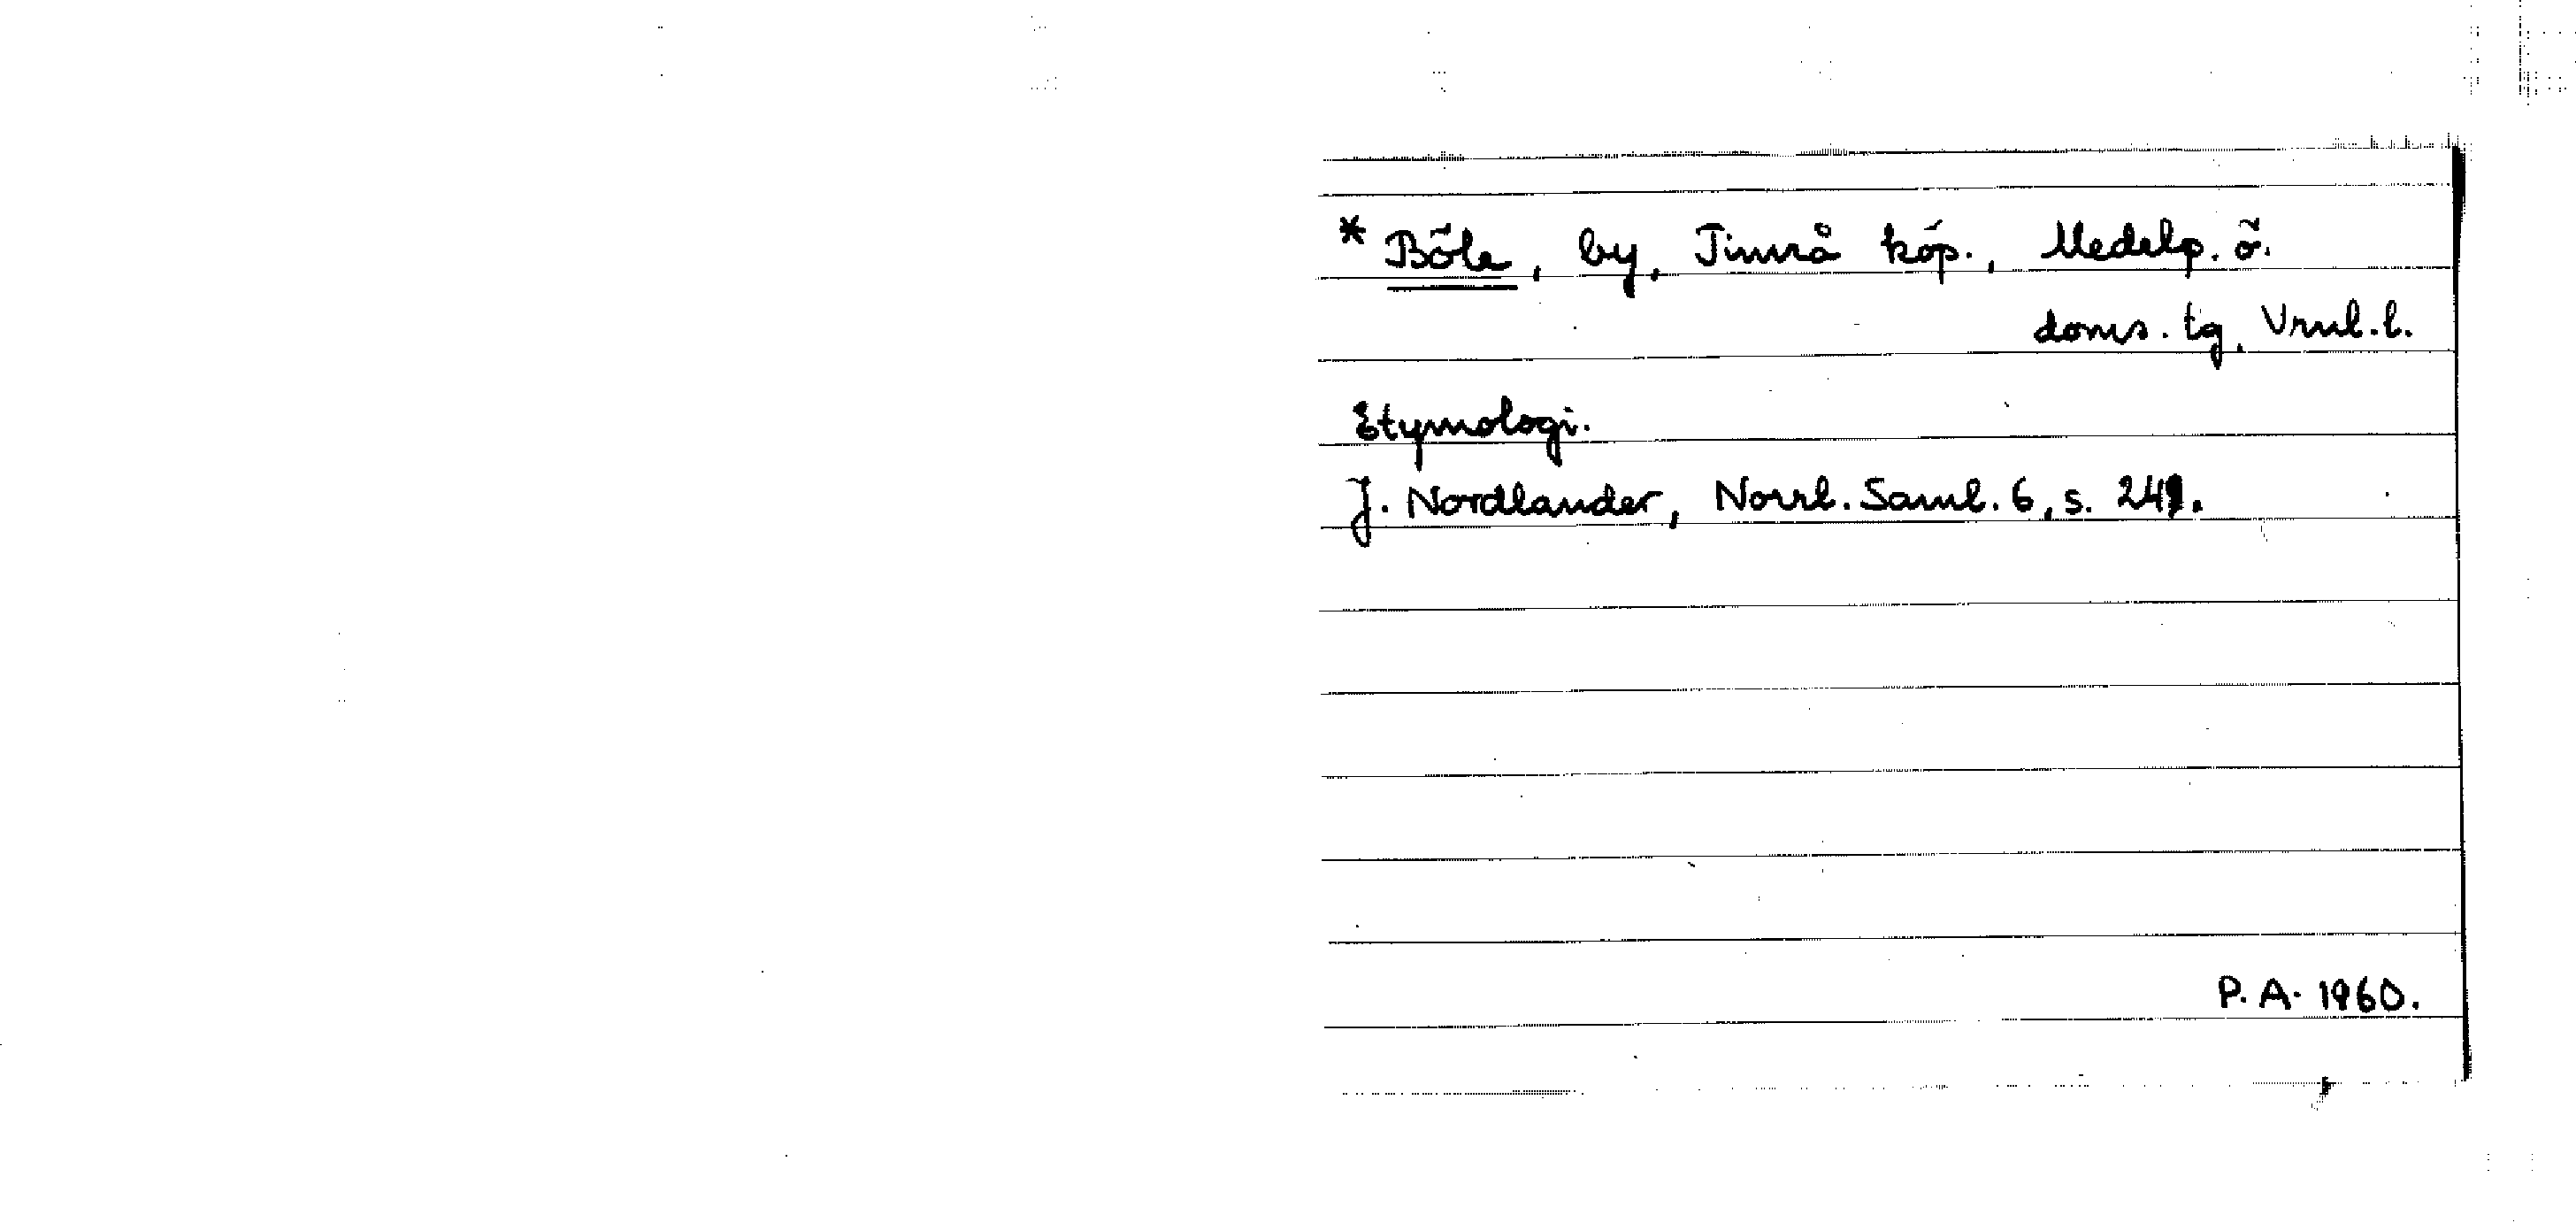 * Böle, by, Timrå köp., Medelp. ö.
doms. tg, Vrnl. l.
Etymologi.
J. Nordlander, Norrl. Saml. 6, s. 241.
P. A. 1960.